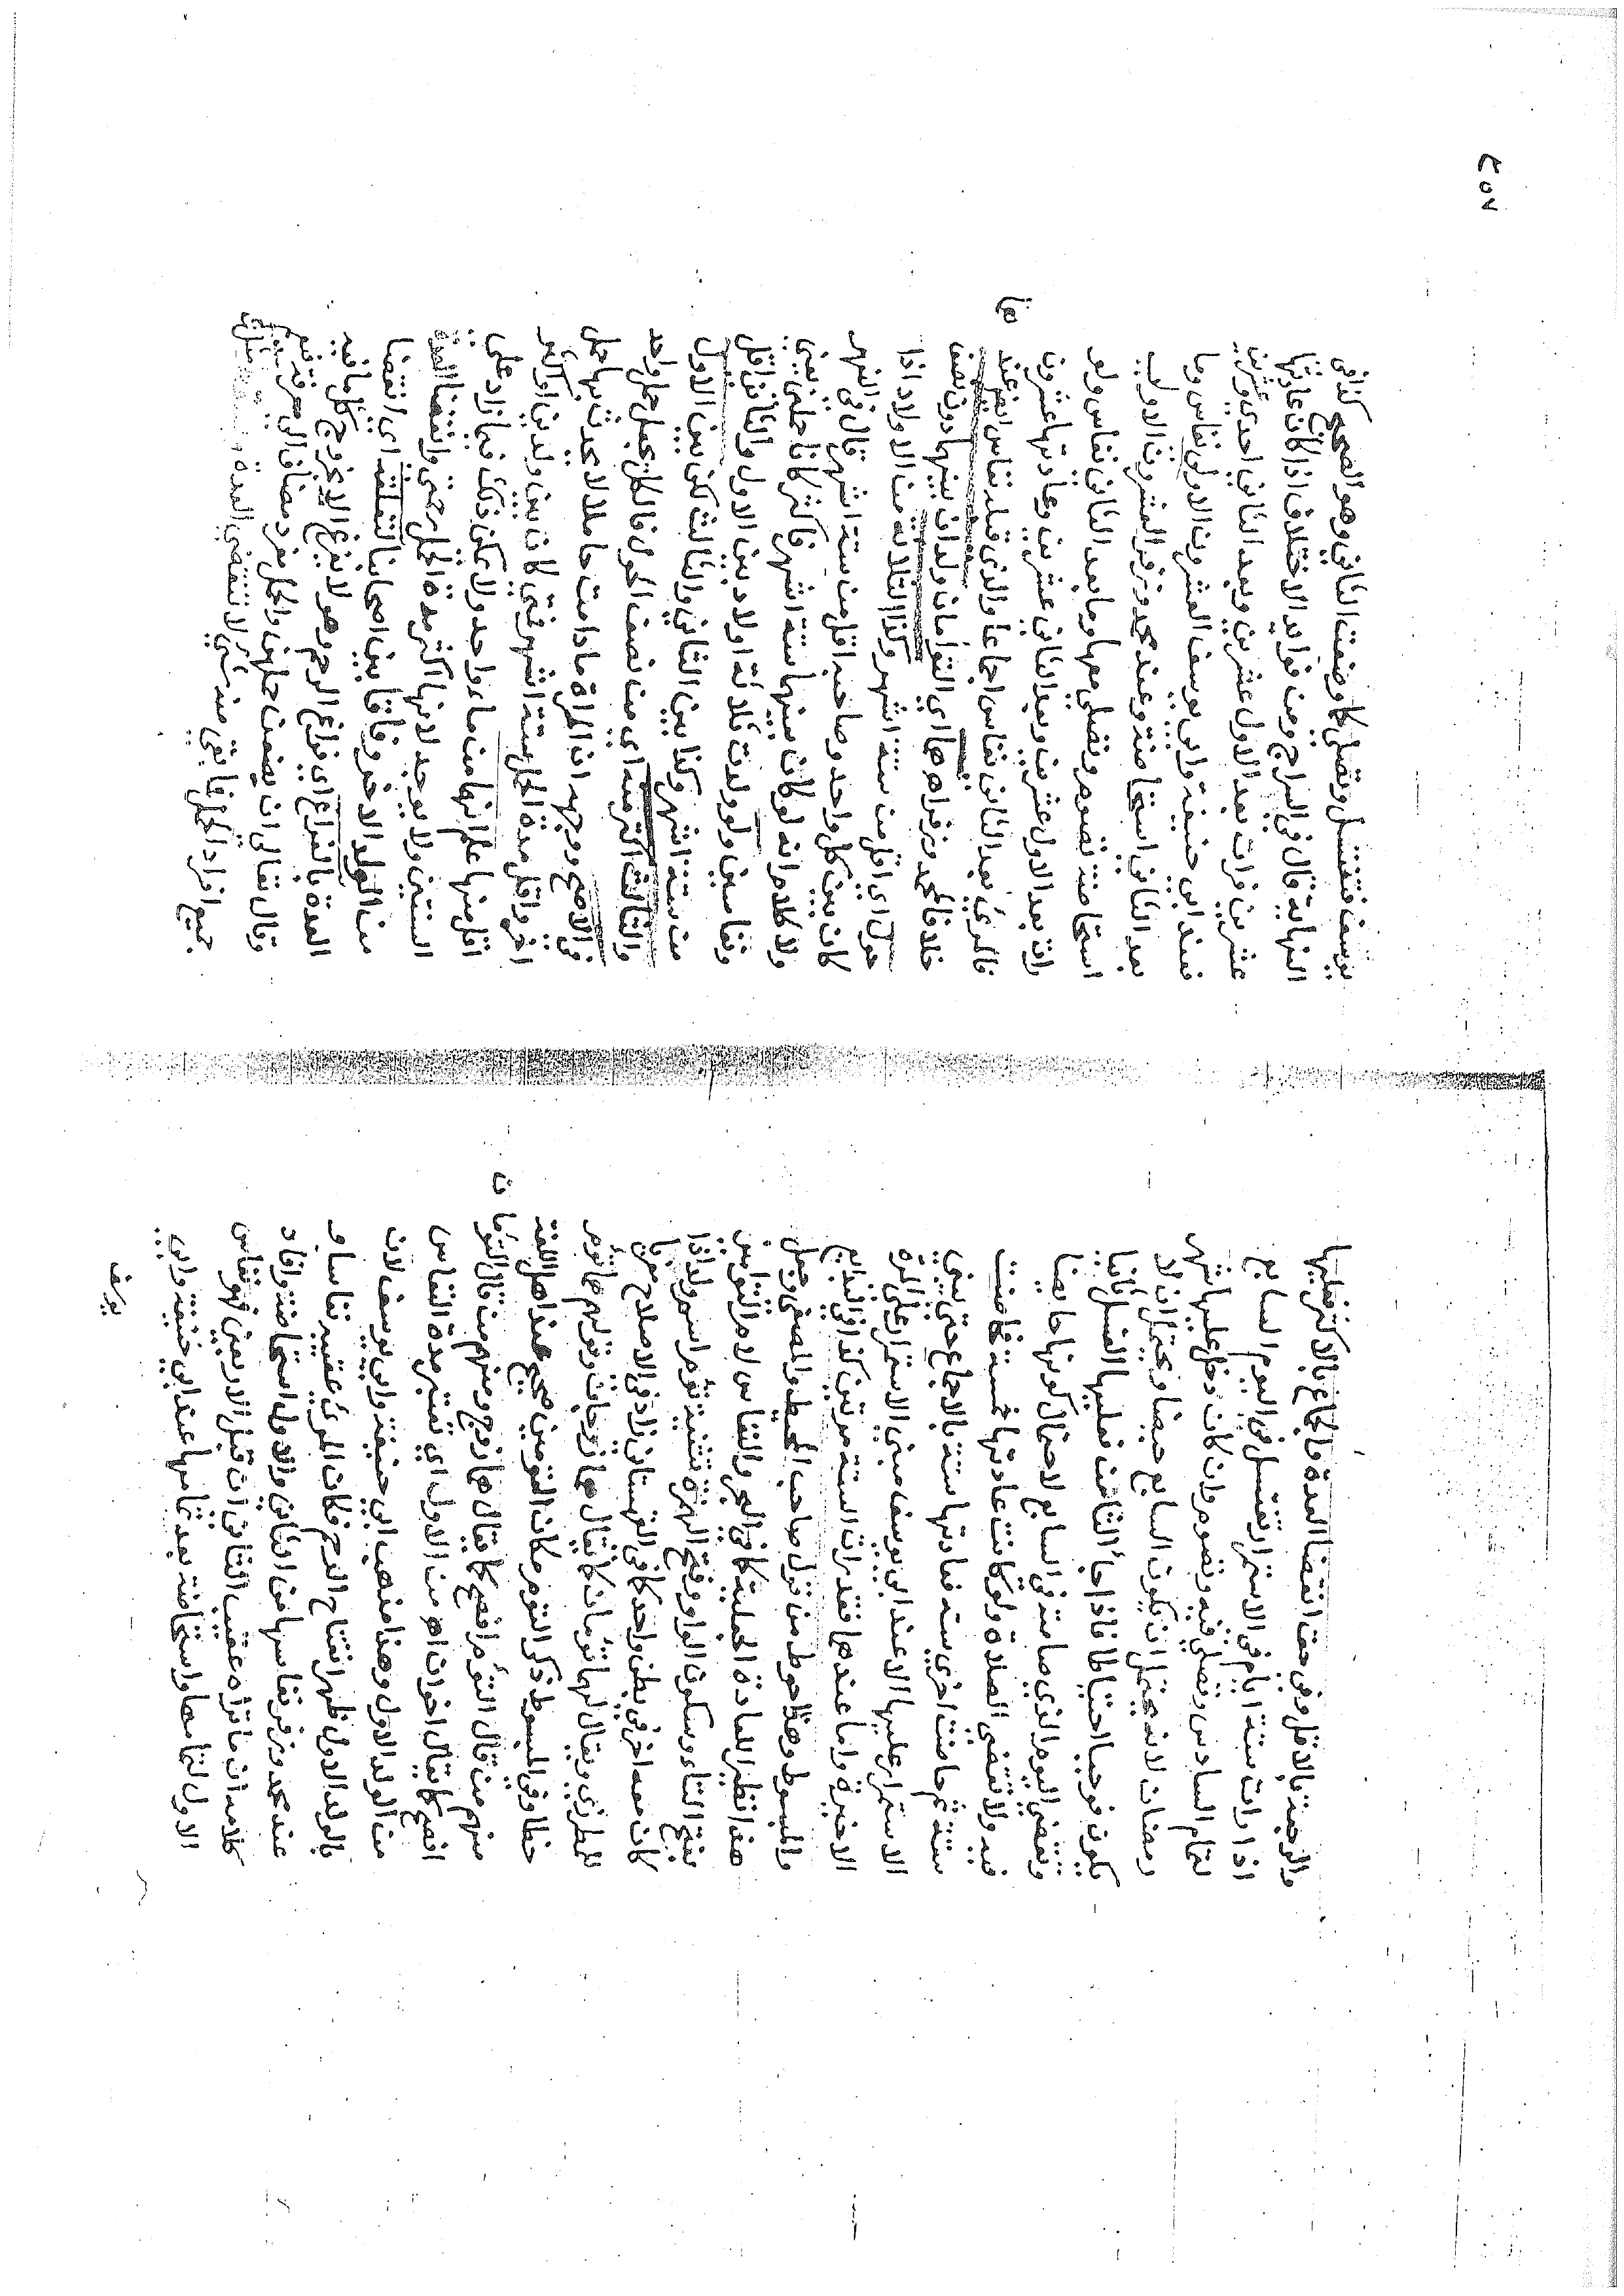 والوضية بالاقل وفي حق انقضا العدة والجماع بالاكثر فعليها
اذا رات ستة ايام في الاستمرار ان تغتسل في اليوم السابع
لتمام السادس وتصلي فيه وتصوم وان كان دخل عليها شهر
رمضان لانه يحتمل ان يكون السابع حيضا ويحتمل ان لا
يكون فوجب احتياطا فاذا جاء الثامن فعليها الغسل ثانيا
وتقضي اليوم الذي صامته في السابع لاحتمال كونها حايضا
فيه ولا تقضي الصلاة ولو كانت عادتها خمسة فحاضت
ستة ثم حاضت اخرى ستة فعادتها ستة بالاجماع حتى يبني
الاستمرار عليها الاعند ابي يوسف مبني الاستمرار على المرة
الاخيرة واما عندهما فقد رات الستة مرتين كذا في البدايع
والمبسوط وهذا احوط من قول صاحب المحيط والمصفى وجعل
هذا نظير العادة الجعلية كما في البحر والنفاس لام التوامين
بفتح التاء وسكون الواو وفتح الهمزة تثنية توءم اسم ولد اذا
كان معه اخر في بطن واحد كما في القهستاني زاد في الاصلاح معزيا
للمطرزي ويقال لهما توءمان كما يقال هما زوجان وقولهم هما توءم
خطا وفي المبسوط ذكر التوم مكان التومين صحيح عند اهل اللغة
منهم من قال التوءم افصح كما يقال هما زوج ومنهم من قال التوءمان
افصح كما يقال اخوان اهـ من الاول اي تعتبر مدة النفاس
من الولد الاول وهذا مذهب ابي حنيفة وابي يوسف لان
بالولد الاول ظهر انفتاح الرحم فكان المرئ عقيبه نفاسا و
عند محمد وزفر نفاسها من الثاني والاول استحاضة وافاد
كلامه ان ما تراه عقيب الثاني ان قبل الاربعين فهو نفاس
الاول لتمامها واستحاضة بعد تمامها عند ابي حنيفة وابي
يوسف
٢٥٧
يوسف فتغتسل وتصلي كما وضعت الثاني وهو الصحيح كذا في
النهاية قال في السراج ومن فوايد الاختلاف اذا كان عادتها
عشرين فرات بعد الاول عشرين وبعد الثاني احدى وعشرين
فعند ابي حنيفة وابي يوسف العشرون الاولى نفاس وما
بعد الثاني استحاضة وعند محمد وزفر العشرون الاولى
استحاضة تصوم وتصلي معها وما بعد الثاني نفاس ولو
رات بعد الاول عشرين وبعد الثاني عشرين وعادتها عشرون
فالمرئ بعد الثاني نفاس اجماعا والذي قبله نفاس ايضا عند
خلافا لمحمد وزفر اهـ هما اي التوامان ولدان بينهما دون نصف
حول اي اقل من ستة اشهر وكذا الثلاثة من الاولاد اذا
كان بين كل واحد وصاحبه اقل من ستة اشهر قال في النهر
ولا كلام انه لو كان بينهما ستة اشهر فاكثر كانا حملين
ونفاسين ولو ولدت ثلاثة اولاد بين الاول والثاني اقل
من ستة اشهر وكذا بين الثاني والثالث لكن بين الاول
والثالث اكثر منه اي من نصف الحول فالكل يجعل حمل واحد
في الاصح ووجهه ان المراة ما دامت حاملا لا يحدث بها حمل
اخر واقل مدة الحمل ستة اشهر فمتى كان بين ولدين
اقل منها علم انهما من ماء واحد ولا يمكن ذلك فيما زاد على
السنتين ولا يوجد لانها اكثر مدة الحمل
من الولد الاخر وفاقا بين اصحابنا لتعلقه اي انقضا
العدة بالفراغ اي فراغ الرحم وهو لا يفرغ الا بخروج كل ما فيه
وقال تعالى ان يضعن حملهن والحمل مفرد مضاف الى معرفة فيعم
جميع افراد الحمل فما بقي منه شيء لا تنقضي العدة